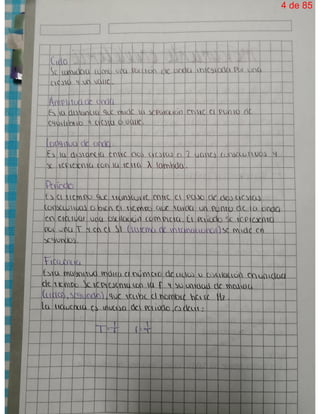 4 de 85
Ciclo
Se considera como una porción de onda integrada por una
cresta y un valle.
Amplitud de onda
Es la distancia que mide la separación entre el punto de
equilibrio y cresta o valle.
Longitud de onda
Es la distancia entre dos crestas o 2 valles consecutivos y
se representa con la letra λ lambda.
Período
Es el tiempo que transcurre entre el paso de dos crestas
consecutivas o bien el tiempo que tarda un punto de la onda
en efectuar una oscilación completa. El período se representa
por una T y en el SI (sistema de internacional) se mide en
segundos.
Frecuencia
Esta magnitud indica el número de ciclos u en unidad
de tiempo. Se representa con la F y su unidad de medida
(ciclos, segundo), que recibe el nombre hertz Hz.
la frecuencia es inversa del período, es decir: